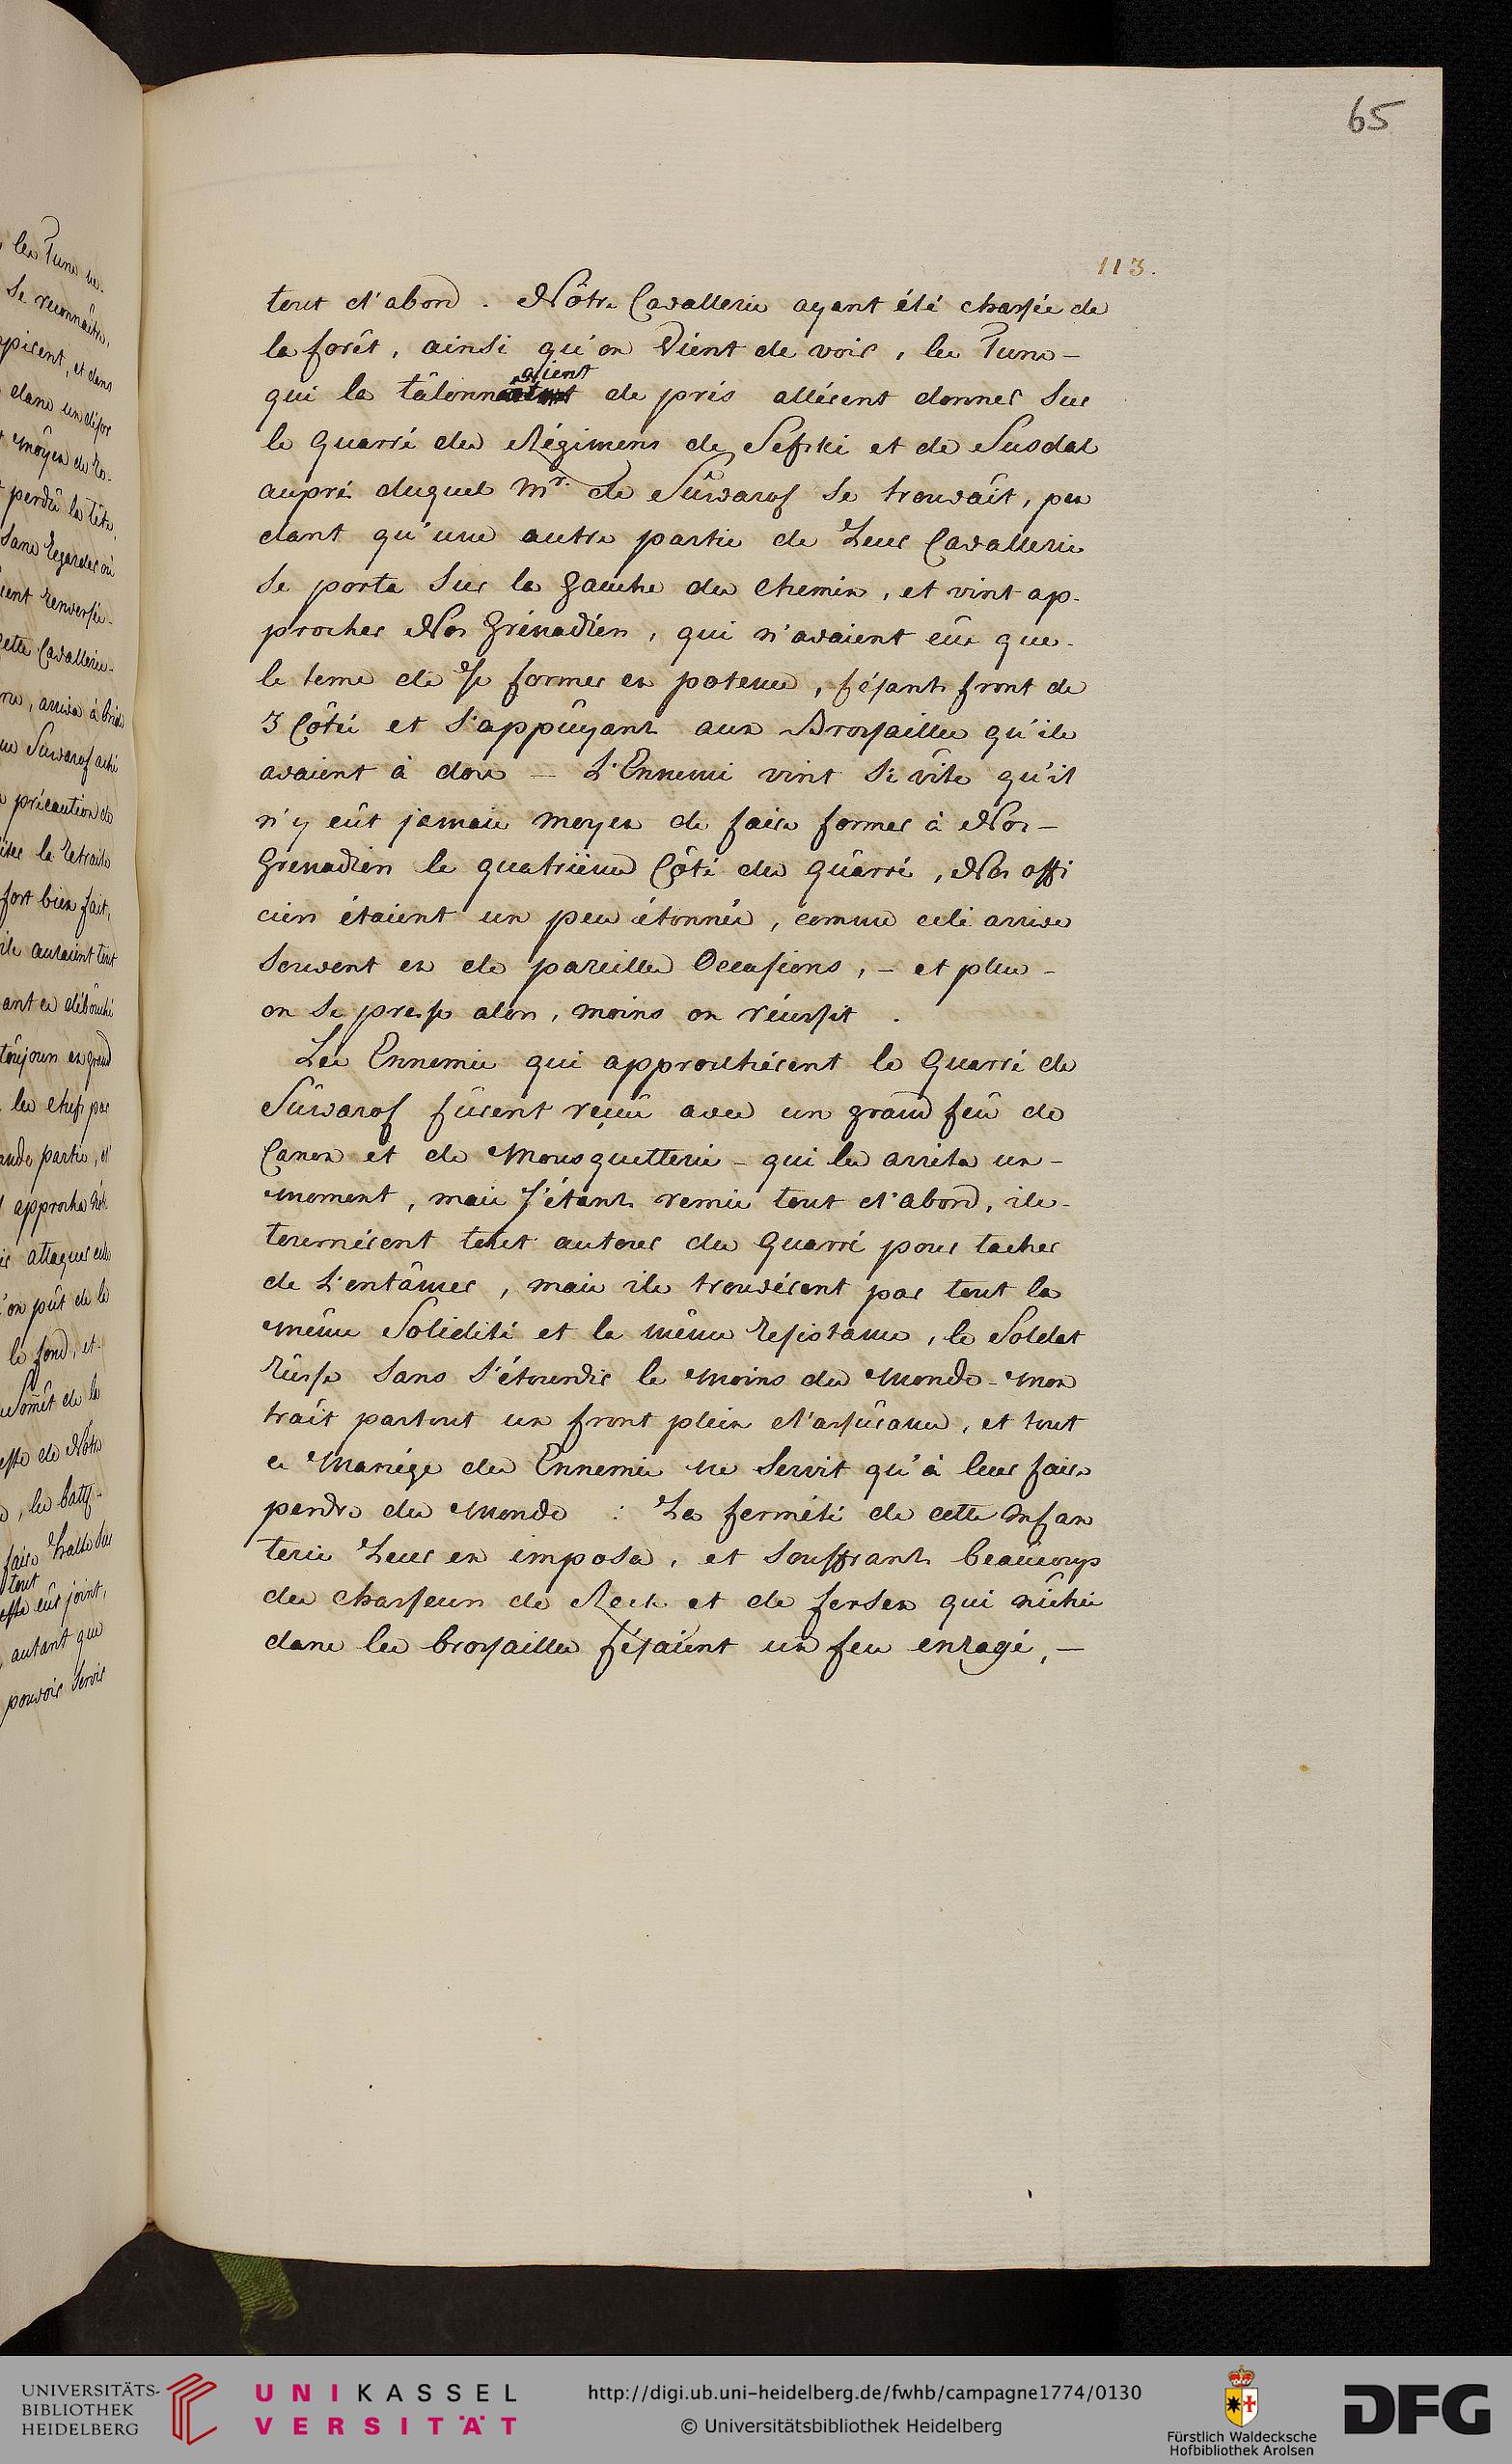 65
113.
tout d'abord. Nôtre Cavallerie ayant été chassée de
la forêt, ainsi qu'on Vient de voir, les Turcs -
aient
qui la tâlonn de près allèrent donner Sur
le Quarré des Régimens de Sefski et de Susdal
auprès duquel Mr. de Sûwarof Se trouvâit, pen
dant qu'une autre partie de Leur Cavallerie
Se porta Sur la Gauche du Chemin, et vint ap-
procher Nos Grénadiers, qui n'avaient eûs que-
le tems de se former en potence, fésants front de
3 Côtés et S'appûyants aux Brossailles qu'ils
avaient à dos — L'Ennemi vint Si vîte qu'il
n'y eût jamais moyen de faire former à Nos -
Grenadiers le quatrième Côté du Quârré, Nos offi
ciers étaient un peu étonnés, comme celà arrive
Souvent en de pareilles Occasions, - et plus -
on Se presse alors, moins on réussit.
Les Ennemis qui approchèrent le Quarré de
Sûwarof fûrent reçûs avec un grand feû de
Canon et de Mousquetterie - qui les arrêta un -
moment, mais s'étants remis tout d'abord, ils -
tournèrent tout autour du Quarré pour tacher
de L'entâmer, mais ils trouvèrent par tout la
même Solidité et la même Résistance, le Soldat
Rûsse Sans S'étourdir le Moins du Monde - Mon
trâit partout un front plein d'assûrance, et tout
ce Manége des Ennemis ne Servit qu'à leur faire
perdre du Monde : La fermêté de cette Infan
terie Leur en imposa, et Souffrants beaûcoup
des chasseurs de Reck et de fersen qui nichés
dans les brossailles fésaient un feu enragé, —
les Turcs ne-
Se reconnaître,
et dans
dans un défor
moyen de Ré-
perdû la tête,
Sans Regarder où
Renversés-
Cavallerie-
arriva à brid
Suwarof
précaution de
la Retraite
fort bien fait,
ils auraient tout
ant ce débouché
toûjours en grand
les chefs par
partie, et
approcha
attaquer
l'on pût de le
le fond, et-
Somêt de la
de Nôtre
les batt-
faire halte Sur
tout
eût joint,
autant que
pouvoir Servir
UNIVERSITÄTS-
BIBLIOTHEK
HEIDELBERG
UNIKASSEL
VERSITÄT
http://digi.ub.uni-heidelberg.de/fwhb/campagne1774/0130
© Universitätsbibliothek Heidelberg
Fürstlich Waldecksche
Hofbibliothek Arolsen
DFG